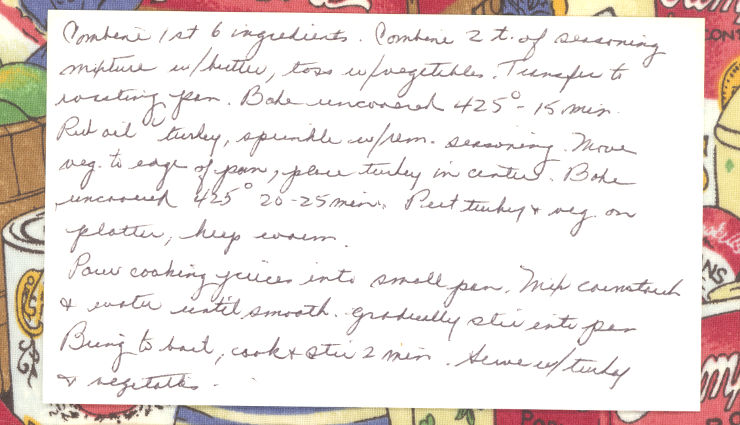 Combine 1st 6 ingredients. Combine 2 t. of seasoning
mixture w/butter, toss w/vegetables. Transfer to
roasting pan. Bake uncovered 425° - 15 min.
Rub oil turkey, sprinkle w/rem. seasoning. Move
veg. to edge of pan, place turkey in center. Bake
uncovered 425° 20-25 min. Put turkey & veg. on
platter, keep warm.
Pour cooking juices into small pan. Mix cornstarch
& water until smooth. Gradually stir into pan
Bring to boil, cook & stir 2 min. Serve w/turkey
& vegetables.